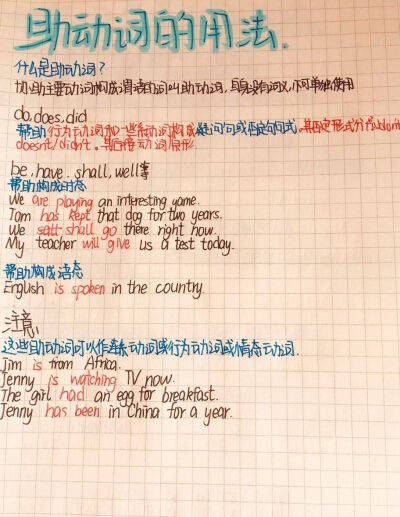 助动词的用法.
什么是助动词?
协助主要动词构成谓语动词叫助动词,自身没有词义,不可单独使用
do, does, did
帮助行为动词和一些系动词构成疑问句或否定句式,其否定形式分为don't
doesn't/didn't。其后接动词原形.
be, have. shall, well等
帮助构成时态
We are playing an interesting game.
Tom has kept that dog for two years.
We shall go there right now.
My teacher will give us a test today.
帮助构成语态
English is spoken in the country.
注意,
这些助动词可以作连系动词或行为动词或情态动词.
Jim is from Africa.
Jenny is watching TV now.
The girl had an egg for breakfast.
Jenny has been in China for a year.